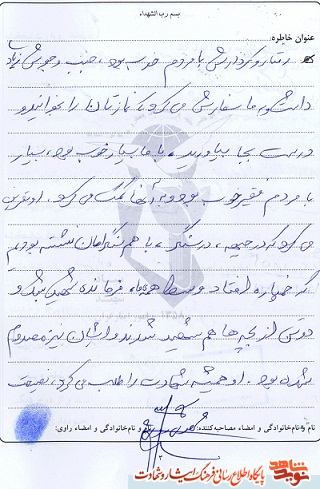 بسم رب الشهداء
عنوان خاطره:
رفتار و کردارش با مردم خوب بود، جنب و جوش زیاد
داشت و به ما سفارش می کرد که نمازتان را بخوانید و
درست بجا بیاورید، با ما بسیار خوب بود، بسیار
با مردم فقیر خوب بود و به آنها کمک می کرد. او
می کرد که در جبهه، در سنگر، با هم سنگرانمان نشسته بودیم
که خمپاره افتاد وسط همه ما، فرمانده شهید شد و
دو تن از بچه ها هم شهید شدند و ایشان نیز مصدوم
شده بود. او همیشه شهادت را طلب می کرد، نصیحت
نام و نام خانوادگی و امضاء مصاحبه کننده:
نام و نام خانوادگی و امضاء راوی:
نوید شاهد
پایگاه اطلاع رسانی فرهنگ ایثار و شهادت